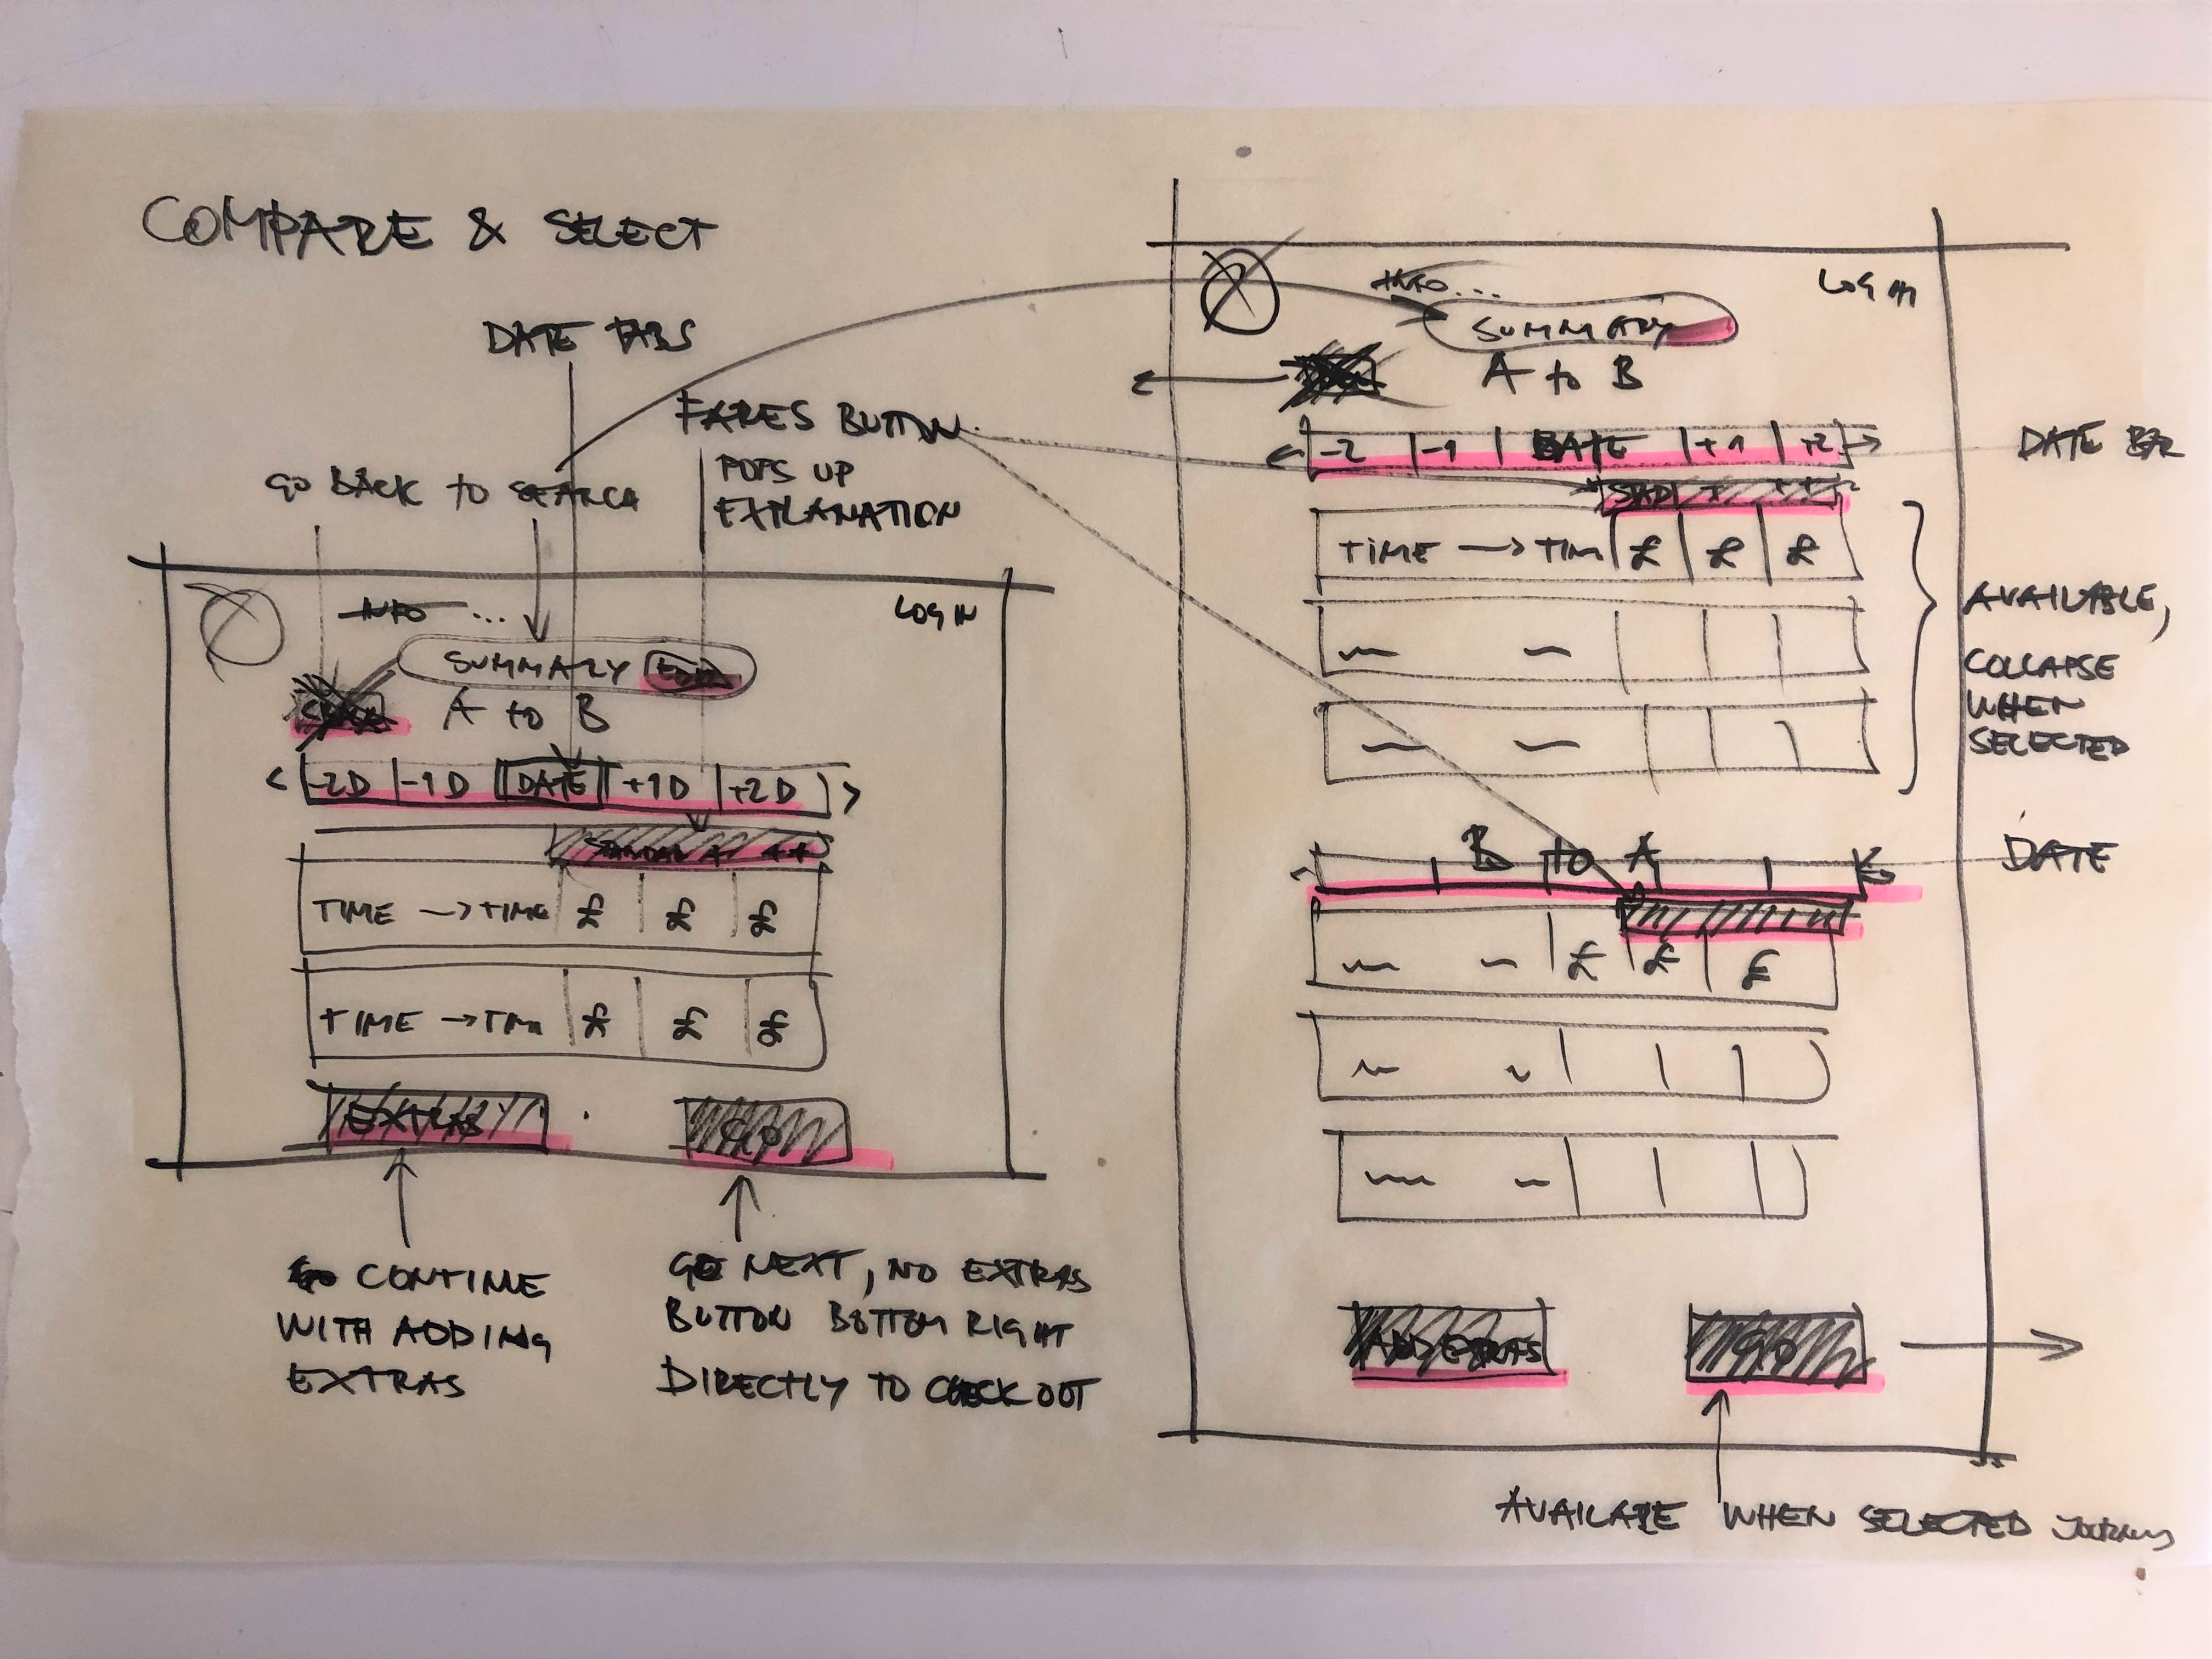 COMPARE & SELECT
DATE TABS
FARES BUTTON
POPS UP
EXPLANATION
GO BACK TO SEARCH
INFO ...
LOG IN
SUMMARY EDIT
A to B
< -2D -1D DATE +1D +2D >
TIME → TIME £ £ £
TIME → TIM £ £ £
EXTRAS
GO
CONTINUE
WITH ADDING
EXTRAS
GO NEXT, NO EXTRAS
BUTTON BOTTOM RIGHT
DIRECTLY TO CHECK OUT
INFO...
LOG IN
SUMMARY
A to B
-2 -1 DATE +1 +2
DATE BAR
TIME → TIM £ £ £
AVAILABLE,
COLLAPSE
WHEN
SELECTED
B to A
DATE
£ £ £
ADD EXTRAS
GO
AVAILABLE WHEN SELECTED JOURNEY